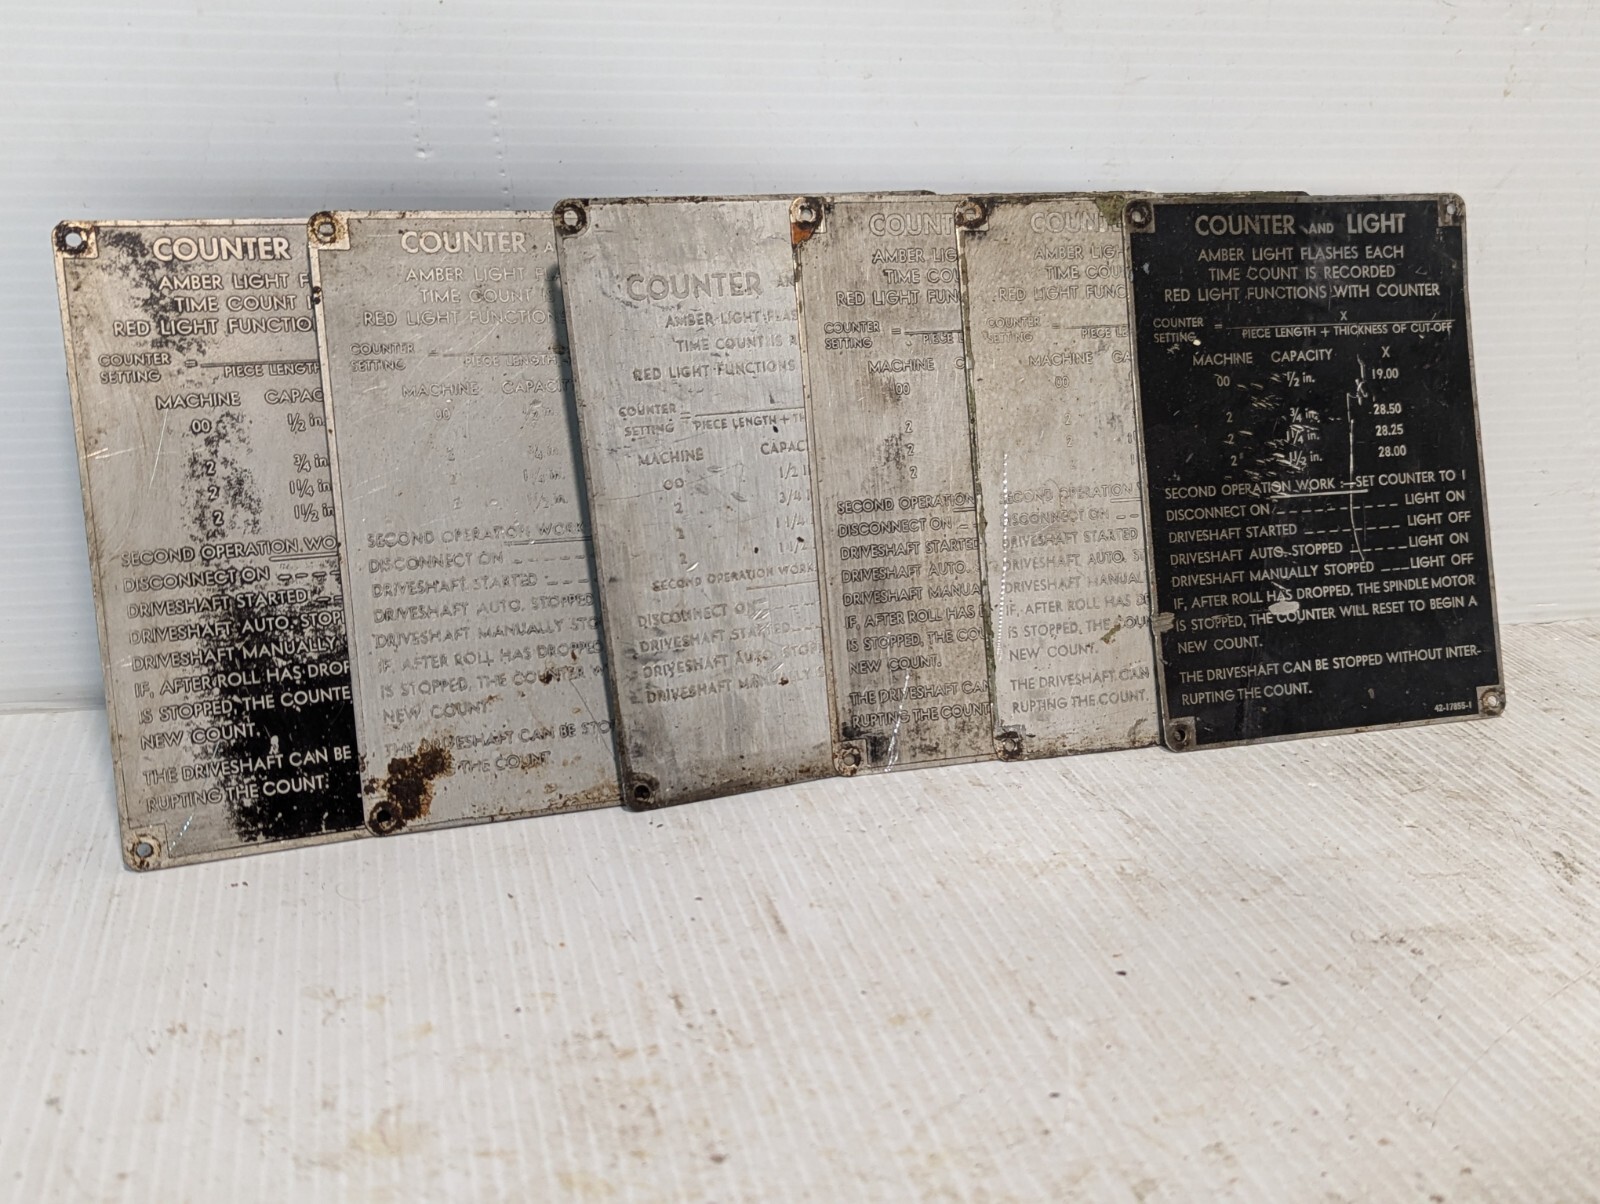 COUNTER
AMBER LIGHT F
TIME COUNT I
RED LIGHT FUNCTIO
COUNTER SETTING = PIECE LENGTH
MACHINE CAPAC
00 1/2 in.
2 3/4 in
2 1 1/4 in
2 1 1/2 in
SECOND OPERATION WO
DISCONNECT ON _ _ _ _
DRIVESHAFT STARTED _ _
DRIVESHAFT AUTO. STOP
DRIVESHAFT MANUALLY
IF, AFTER ROLL HAS DROP
IS STOPPED, THE COUNTE
NEW COUNT.
THE DRIVESHAFT CAN BE
RUPTING THE COUNT.
COUNTER A
AMBER LIGHT F
TIME COUNT
RED LIGHT FUNCTION
COUNTER SETTING = PIECE LENGTH
MACHINE CAPACIT
00 1/2 in.
2 3/4 in.
2 1 1/4 in.
2 1 1/2 in.
SECOND OPERATION WORK
DISCONNECT ON _ _ _ _
DRIVESHAFT STARTED _ _ _
DRIVESHAFT AUTO. STOPPED
DRIVESHAFT MANUALLY STO
IF, AFTER ROLL HAS DROPPE
IS STOPPED, THE COUNTER W
NEW COUNT.
THE DRIVESHAFT CAN BE STO
THE COUNT.
COUNTER AN
AMBER LIGHT FLAS
TIME COUNT IS R
RED LIGHT FUNCTIONS
COUNTER SETTING = PIECE LENGTH + TH
MACHINE CAPAC
00 1/2 I
2 3/4 I
2 1 1/4
2 1 1/2
SECOND OPERATION WORK
DISCONNECT ON _ _ _
DRIVESHAFT STARTED _ _
DRIVESHAFT AUTO. STOP
DRIVESHAFT MANUALLY S
COUNT
AMBER LIG
TIME COU
RED LIGHT FUN
COUNTER SETTING = PIECE L
MACHINE C
00
2
2
2
SECOND OPERATION
DISCONNECT ON _ _
DRIVESHAFT STARTED
DRIVESHAFT AUTO.
DRIVESHAFT MANUA
IF, AFTER ROLL HAS D
IS STOPPED, THE COU
NEW COUNT.
THE DRIVESHAFT CAN
RUPTING THE COUNT
COUNT
AMBER LIG
TIME COU
RED LIGHT FUNC
COUNTER SETTING = PIECE LE
MACHINE CA
00
2
2
2
SECOND OPERATION
DISCONNECT ON _ _
DRIVESHAFT STARTED
DRIVESHAFT AUTO. S
DRIVESHAFT MANUAL
IF, AFTER ROLL HAS D
IS STOPPED, THE COU
NEW COUNT.
THE DRIVESHAFT CAN
RUPTING THE COUNT.
COUNTER AND LIGHT
AMBER LIGHT FLASHES EACH
TIME COUNT IS RECORDED
RED LIGHT FUNCTIONS WITH COUNTER
COUNTER SETTING = X / PIECE LENGTH + THICKNESS OF CUT-OFF
MACHINE CAPACITY X
00 1/2 in. 19.00
2 3/4 in. 28.50
2 1 1/4 in. 28.25
2 1 1/2 in. 28.00
SECOND OPERATION WORK :—SET COUNTER TO 1
DISCONNECT ON _ _ _ _ _ _ _ _ LIGHT ON
DRIVESHAFT STARTED _ _ _ _ _ _ LIGHT OFF
DRIVESHAFT AUTO. STOPPED _ _ _ _ LIGHT ON
DRIVESHAFT MANUALLY STOPPED _ _ _ LIGHT OFF
IF, AFTER ROLL HAS DROPPED, THE SPINDLE MOTOR
IS STOPPED, THE COUNTER WILL RESET TO BEGIN A
NEW COUNT.
THE DRIVESHAFT CAN BE STOPPED WITHOUT INTER-
RUPTING THE COUNT.
42-17855-1